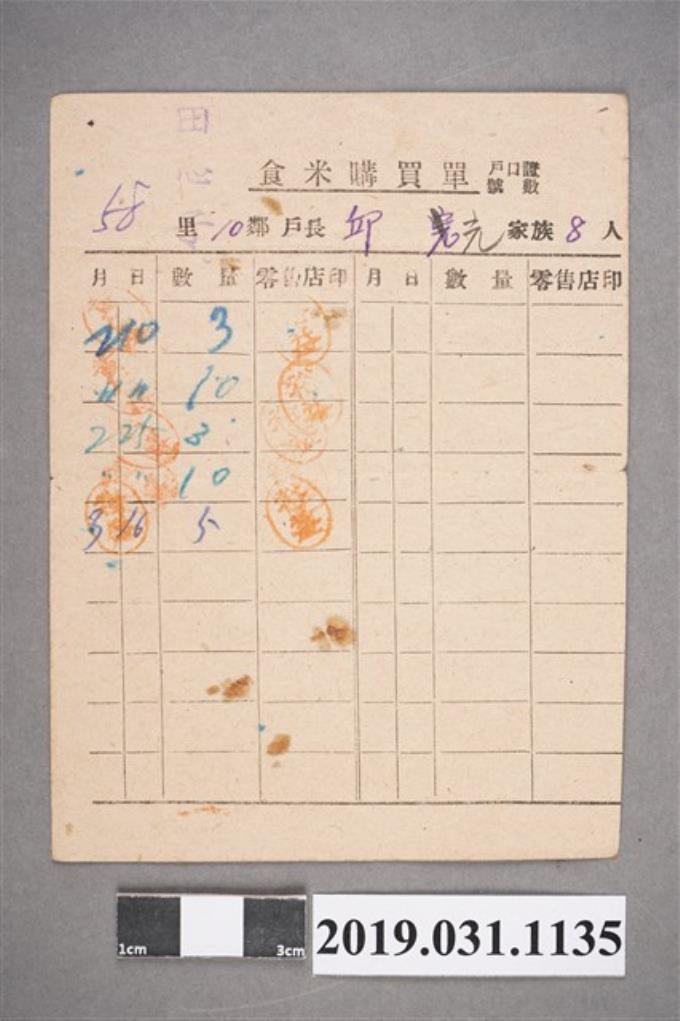 食米購買單 戶口號 證數
58 里 10 鄰 戶長 邱 元 家族 8 人
月 日 數量 零售店印 月 日 數量 零售店印
2 10 3
〃 〃 10
2 25 3
〃 〃 10
3 16 5
1cm 3cm
2019.031.1135